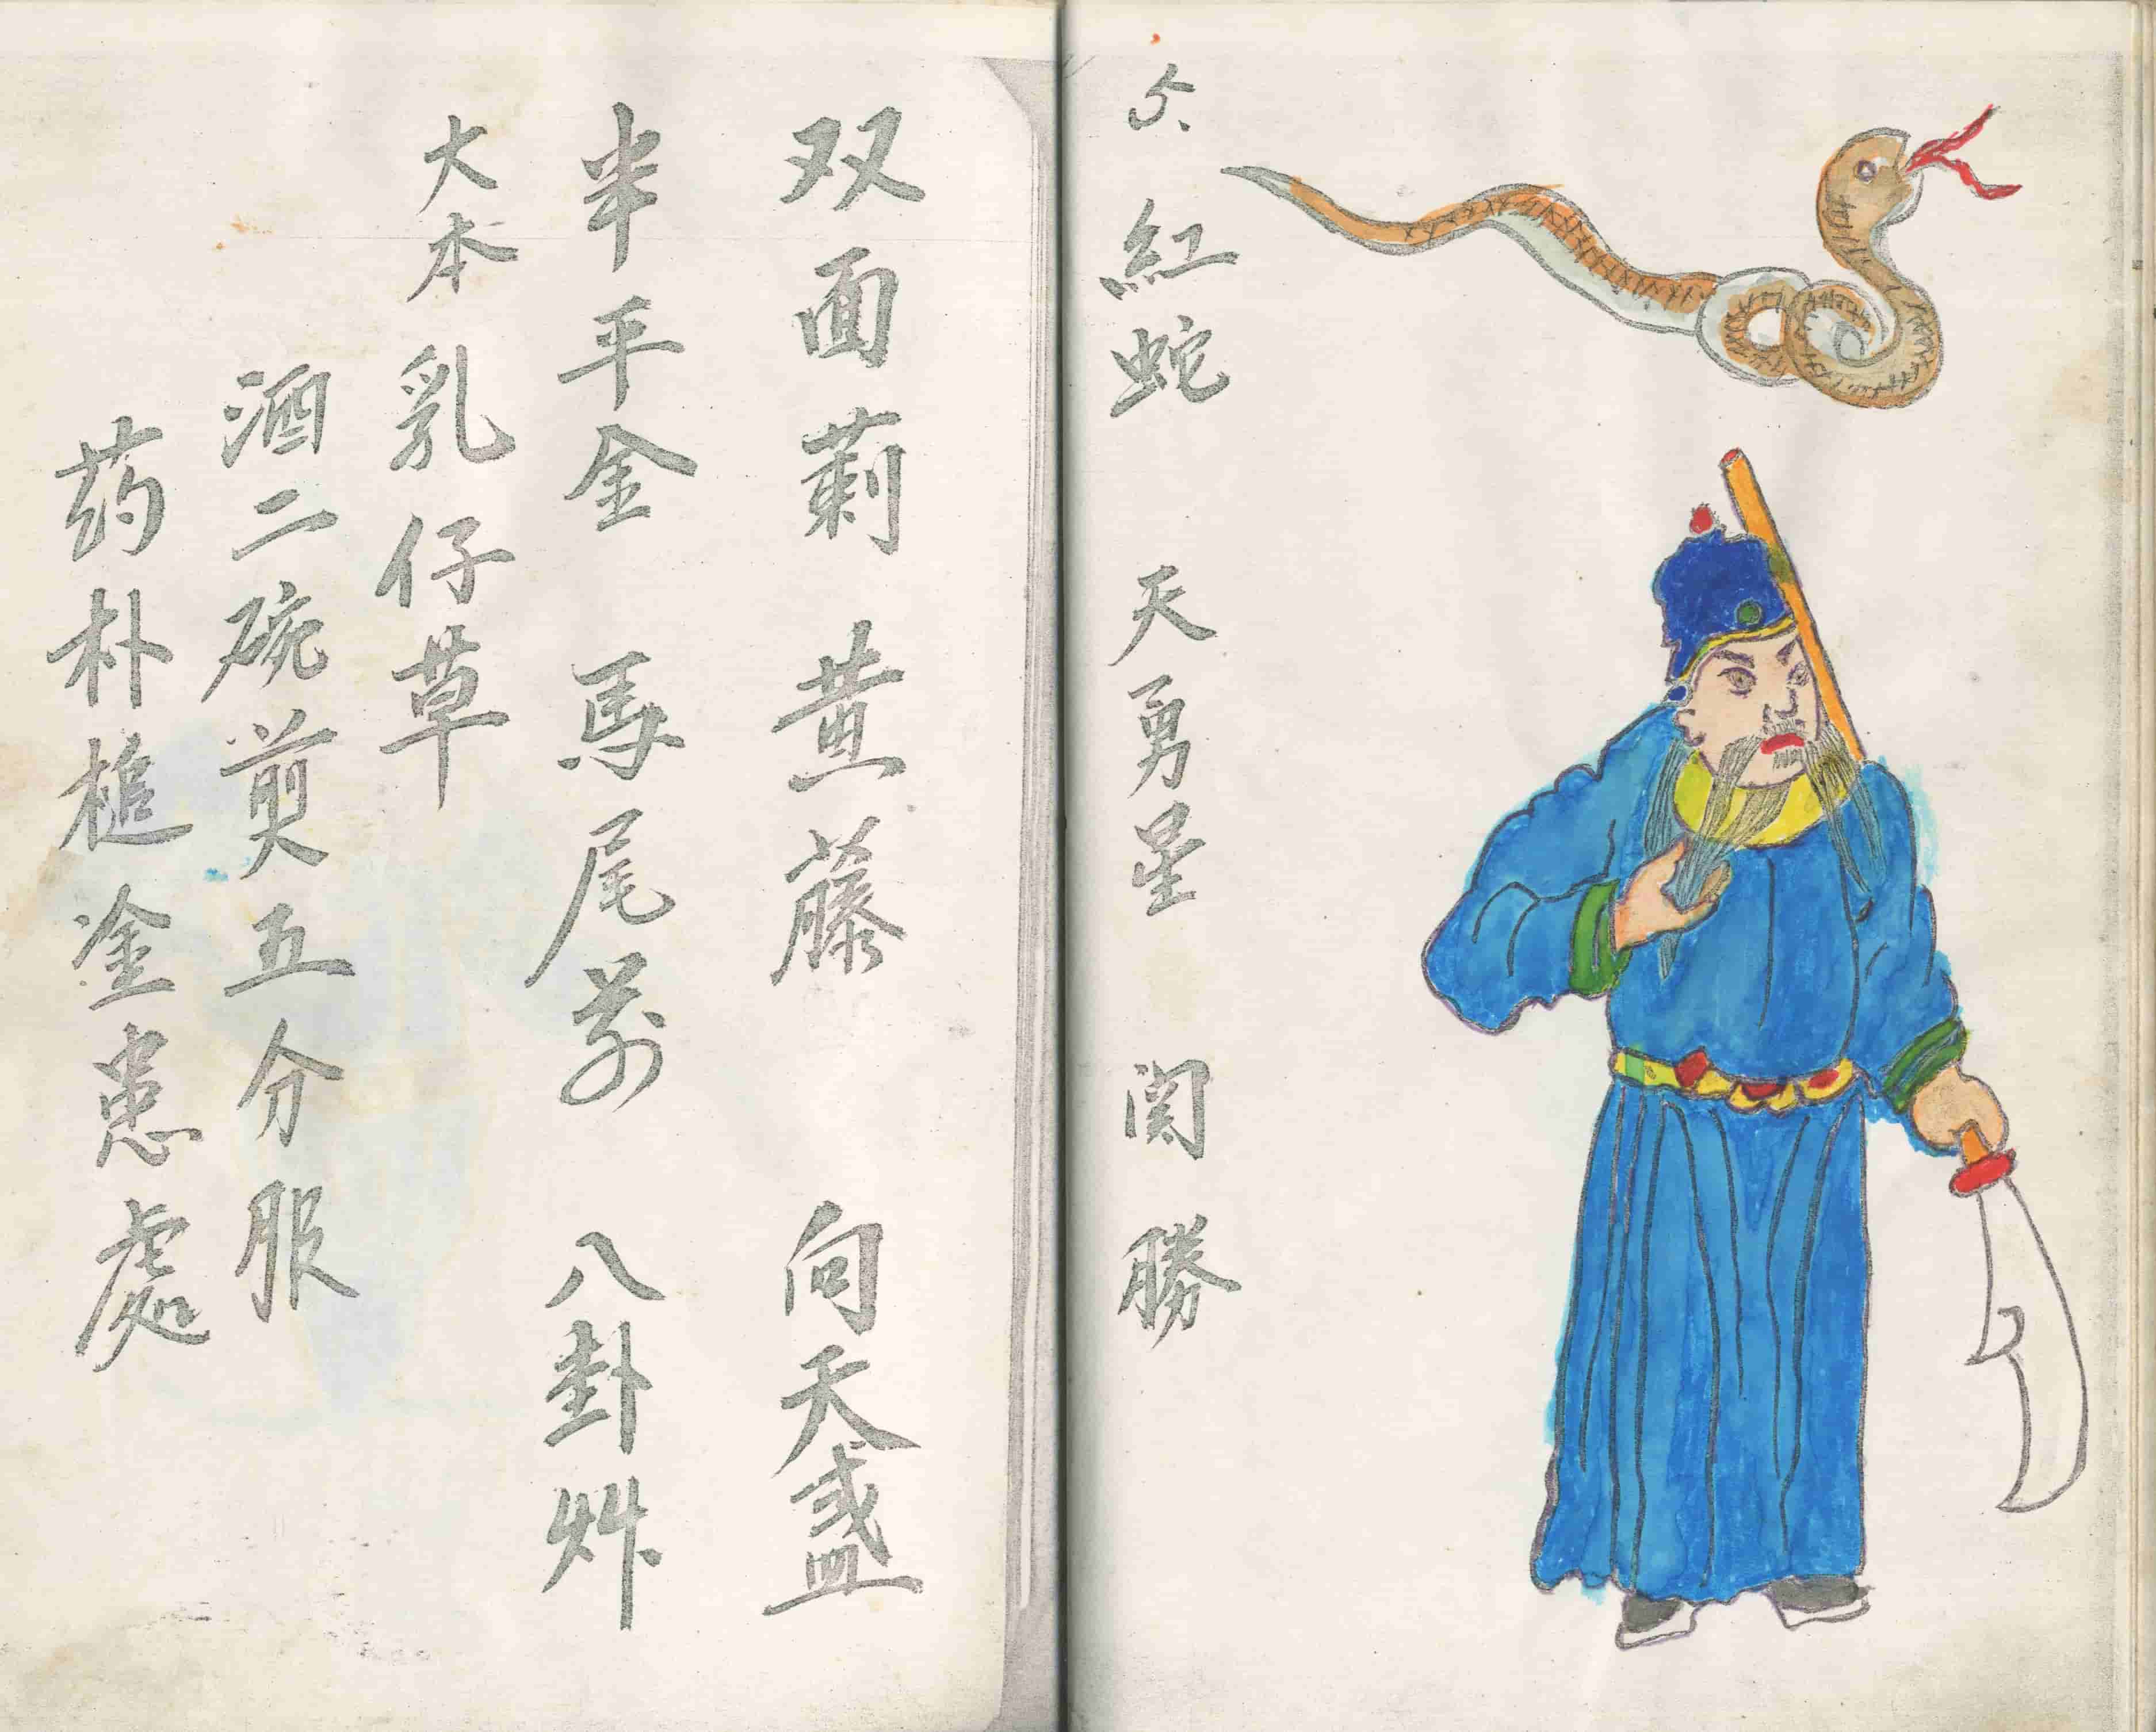 六 紅蛇 天勇星 関勝
双面莿 黄藤 向天盞
半平金 馬尾募 八卦艸
大本乳仔草
酒二碗煎五分服
药朴槌塗患處